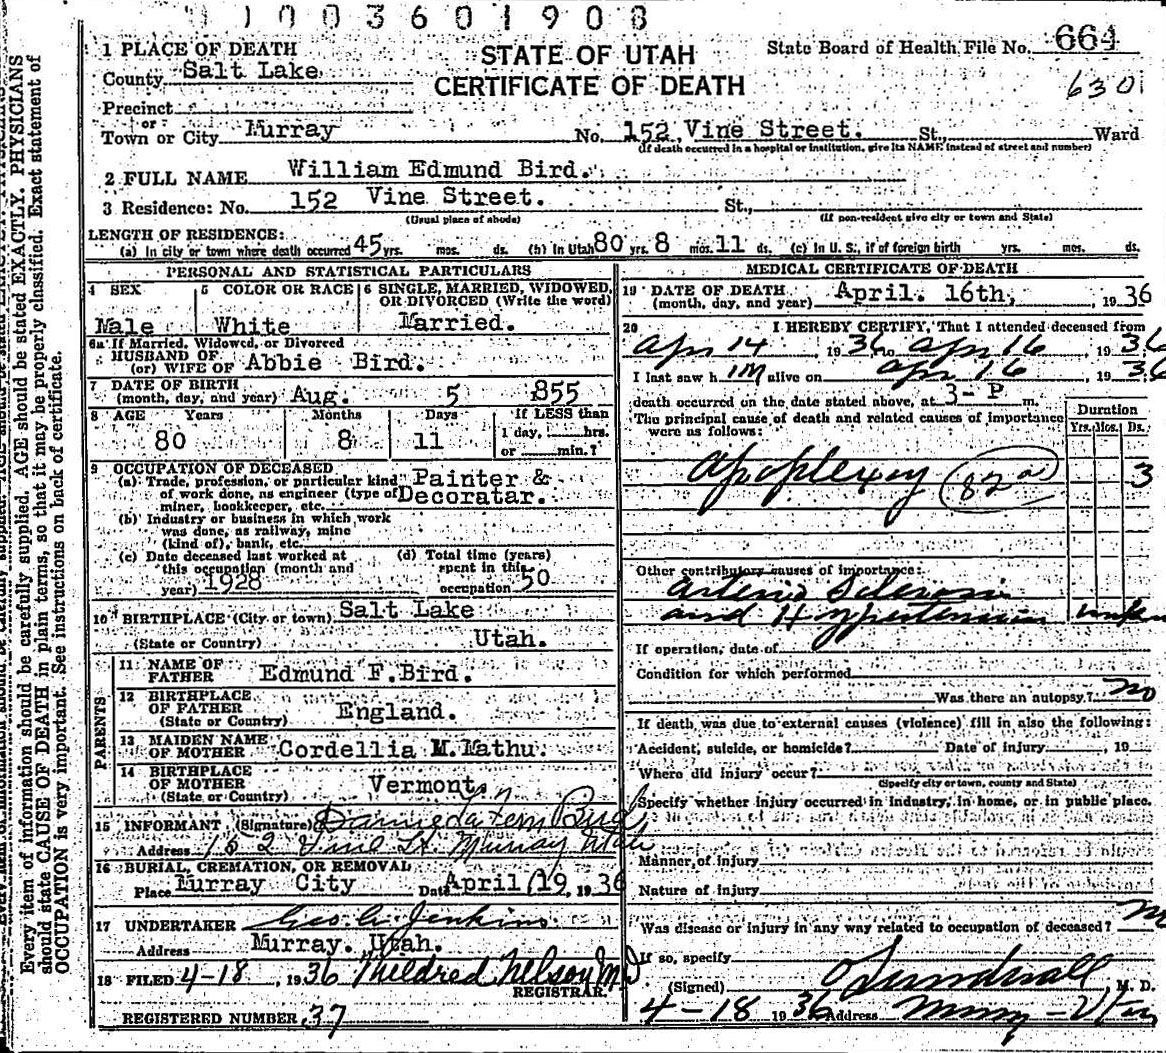 1003601908
STATE OF UTAH
CERTIFICATE OF DEATH
State Board of Health File No. 664
6301
1 PLACE OF DEATH
County Salt Lake
Precinct
or
Town or City Murray No. 152 Vine Street. St., Ward
(If death occurred in a hospital or institution, give its NAME instead of street and number)
2 FULL NAME William Edmund Bird.
3 Residence: No. 152 Vine Street. St.,
(Usual place of abode) (If non-resident give city or town and State)
LENGTH OF RESIDENCE:
(a) In city or town where death occurred 45 yrs. mos. ds. (b) In Utah 80 yrs. 8 mos. 11 ds. (c) In U. S., if of foreign birth yrs. mos. ds.
PERSONAL AND STATISTICAL PARTICULARS
4 SEX
Male
5 COLOR OR RACE
White
6 SINGLE, MARRIED, WIDOWED, OR DIVORCED (Write the word)
Married.
6a If Married, Widowed, or Divorced
HUSBAND OF
(or) WIFE OF Abbie Bird.
7 DATE OF BIRTH
(month, day, and year) Aug. 5 1855
8 AGE Years Months Days If LESS than
80 8 11 1 day, hrs.
or min.?
9 OCCUPATION OF DECEASED
(a) Trade, profession, or particular kind Painter &
of work done, as engineer (type of Decoratar.
miner, bookkeeper, etc.
(b) Industry or business in which work
was done, as railway, mine
(kind of), bank, etc.
(c) Date deceased last worked at
this occupation (month and
year) 1928
(d) Total time (years)
spent in this
occupation 50
10 BIRTHPLACE (City or town) Salt Lake
(State or Country) Utah.
PARENTS
11 NAME OF
FATHER Edmund F. Bird.
12 BIRTHPLACE
OF FATHER England.
(State or Country)
13 MAIDEN NAME
OF MOTHER Cordellia M. Mathu.
14 BIRTHPLACE
OF MOTHER Vermont.
(State or Country)
15 INFORMANT (Signature) Bird
Address 152 Vine St. Murray Utah
16 BURIAL, CREMATION, OR REMOVAL
Place Murray City Date April 19, 1936
17 UNDERTAKER Geo. A. Jenkins.
Address Murray. Utah.
18 FILED 4-18, 1936 Mildred Nelson M.D
REGISTRAR.
REGISTERED NUMBER 37
MEDICAL CERTIFICATE OF DEATH
19 DATE OF DEATH
(month, day, and year) April. 16th, 1936
20 I HEREBY CERTIFY, That I attended deceased from
Apr 14 1936 to Apr 16 1936
I last saw h im alive on Apr 16 1936
death occurred on the date stated above, at 3-P m.
The principal cause of death and related causes of importance
were as follows:
Duration
Yrs. Mos. Ds.
Apoplexy (82a) 3
Other contributory causes of importance:
Arterio Sclerosis
and Hypertension unkn
If operation, date of
Condition for which performed
Was there an autopsy? no
If death was due to external causes (violence) fill in also the following:
Accident, suicide, or homicide? Date of injury , 19
Where did injury occur?
(Specify city or town, county and State)
Specify whether injury occurred in industry, in home, or in public place.
Manner of injury
Nature of injury
Was disease or injury in any way related to occupation of deceased? no
If so, specify
(Signed) O Sundwall, M. D.
4-18 1936 Address Murray - Utah
Every item of information should be carefully supplied. AGE should be stated EXACTLY. PHYSICIANS
should state CAUSE OF DEATH in plain terms, so that it may be properly classified. Exact statement of
OCCUPATION is very important. See instructions on back of certificate.